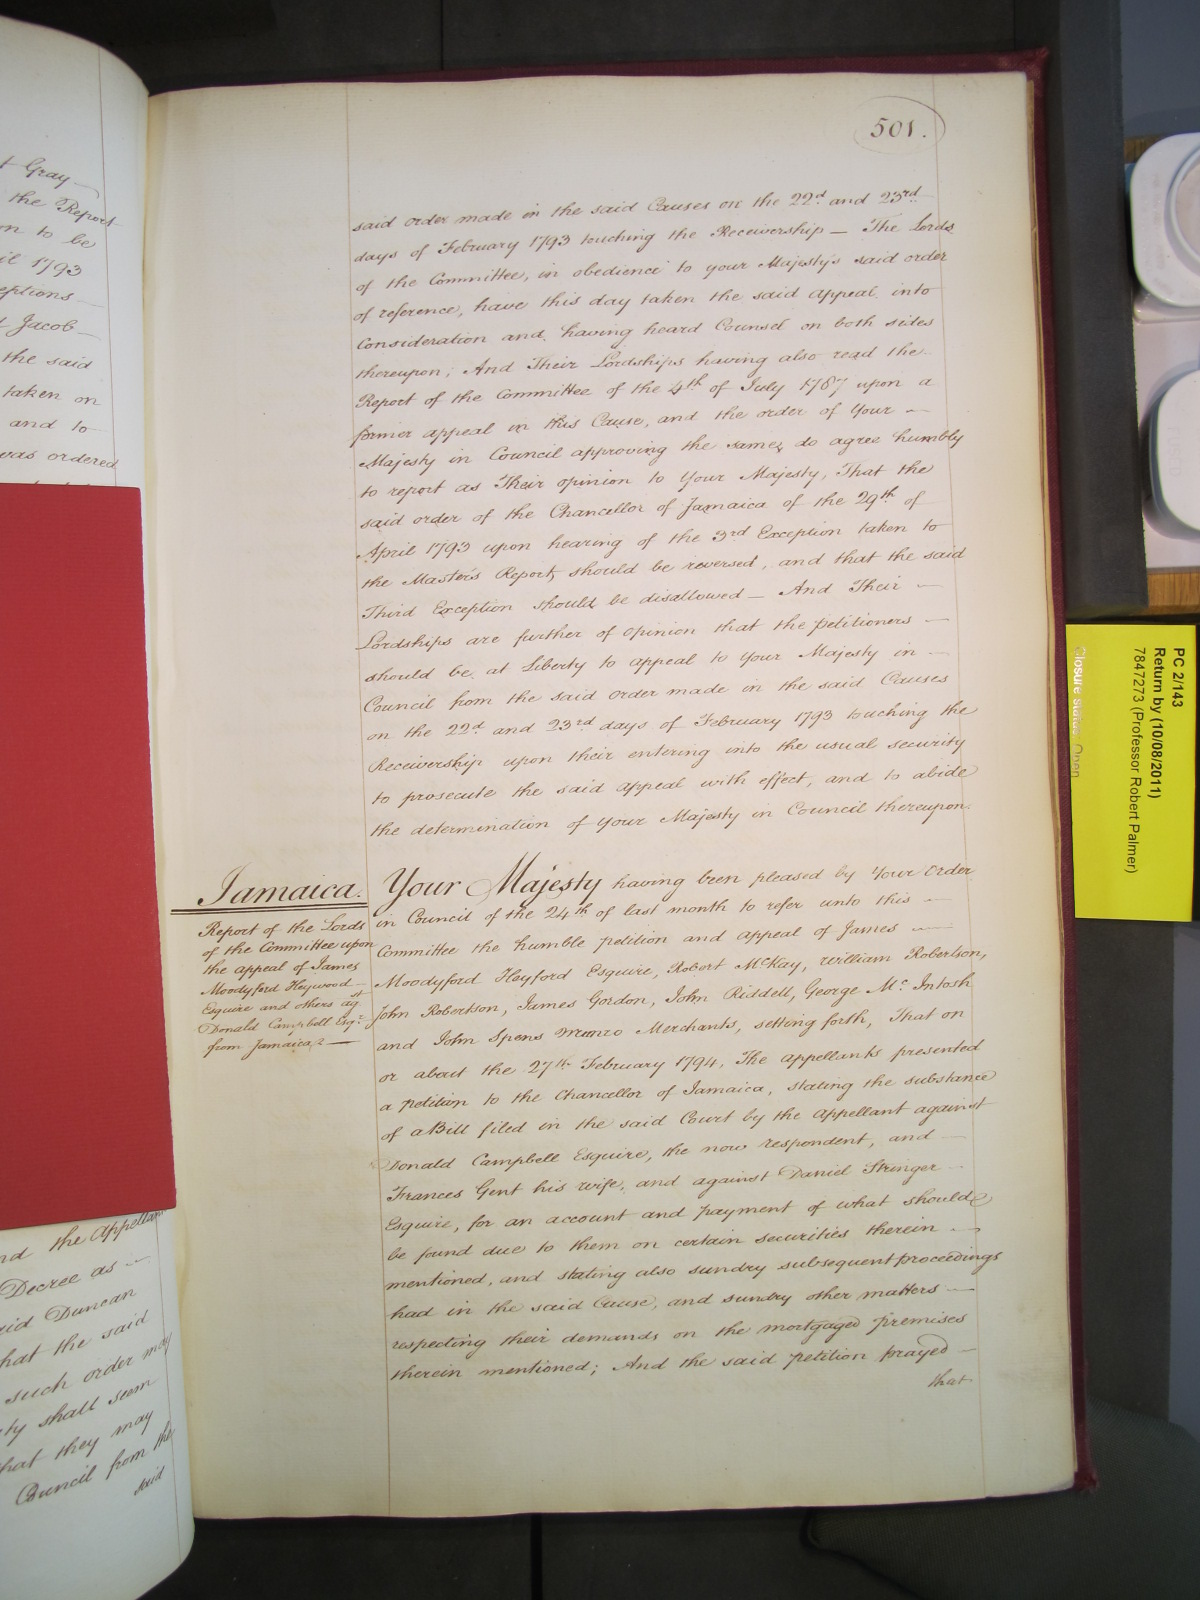 t Gray
the Report
on to be
il 1793
eptions
t Jacob
the said
taken on
and to
was ordered
nd the Appellan
Decree as
aid Duncan
hat the said
such order may
ty shall seem
that they may
Council from the
said
501.
said order made in the said Causes on the 22d and 23rd
days of February 1793 touching the Receivership — The Lords
of the Committee, in obedience to your Majesty's said order
of reference, have this day taken the said appeal into
Consideration and having heard Counsel on both sides
thereupon; And Their Lordships having also read the
Report of the Committee of the 4th of July 1787 upon a
former appeal in this Cause, and the order of Your —
Majesty in Council approving the same, do agree humbly
to report as Their opinion to Your Majesty, That the
said order of the Chancellor of Jamaica of the 29th of
April 1793 upon hearing of the 3rd Exception taken to
the Master's Report, should be reversed, and that the said
Third Exception should be disallowed — And Their —
Lordships are further of opinion that the petitioners —
should be at Liberty to appeal to Your Majesty in —
Council from the said order made in the said Causes
on the 22d and 23rd days of February 1793 touching the
Receivership upon their entering into the usual security
to prosecute the said appeal with effect, and to abide
the determination of Your Majesty in Council thereupon.
Jamaica.
Report of the Lords
of the Committee upon
the appeal of James
Moodyford Heywood —
Esquire and others agt
Donald Campbell Esqr
from Jamaica —
Your Majesty having been pleased by Your Order
in Council of the 24th of last month to refer unto this —
Committee the humble petition and appeal of James —
Moodyford Heyford Esquire, Robert McKay, William Robertson,
John Robertson, James Gordon, John Riddell, George Mc Intosh
and John Spens Munro Merchants, setting forth, That on
or about the 27th February 1794, The appellants presented
a petition to the Chancellor of Jamaica, stating the substance
of a Bill filed in the said Court by the appellant against
Donald Campbell Esquire, the now respondent, and —
Frances Gent his wife, and against Daniel Stringer —
Esquire, for an account and payment of what should
be found due to them on certain securities therein —
mentioned, and stating also sundry subsequent proceedings
had in the said Cause, and sundry other matters —
respecting their demands on the mortgaged premises
therein mentioned; And the said petition prayed —
that
PC 2/143
Return by (10/08/2011)
7847273 (Professor Robert Palmer)
Closure status: Open